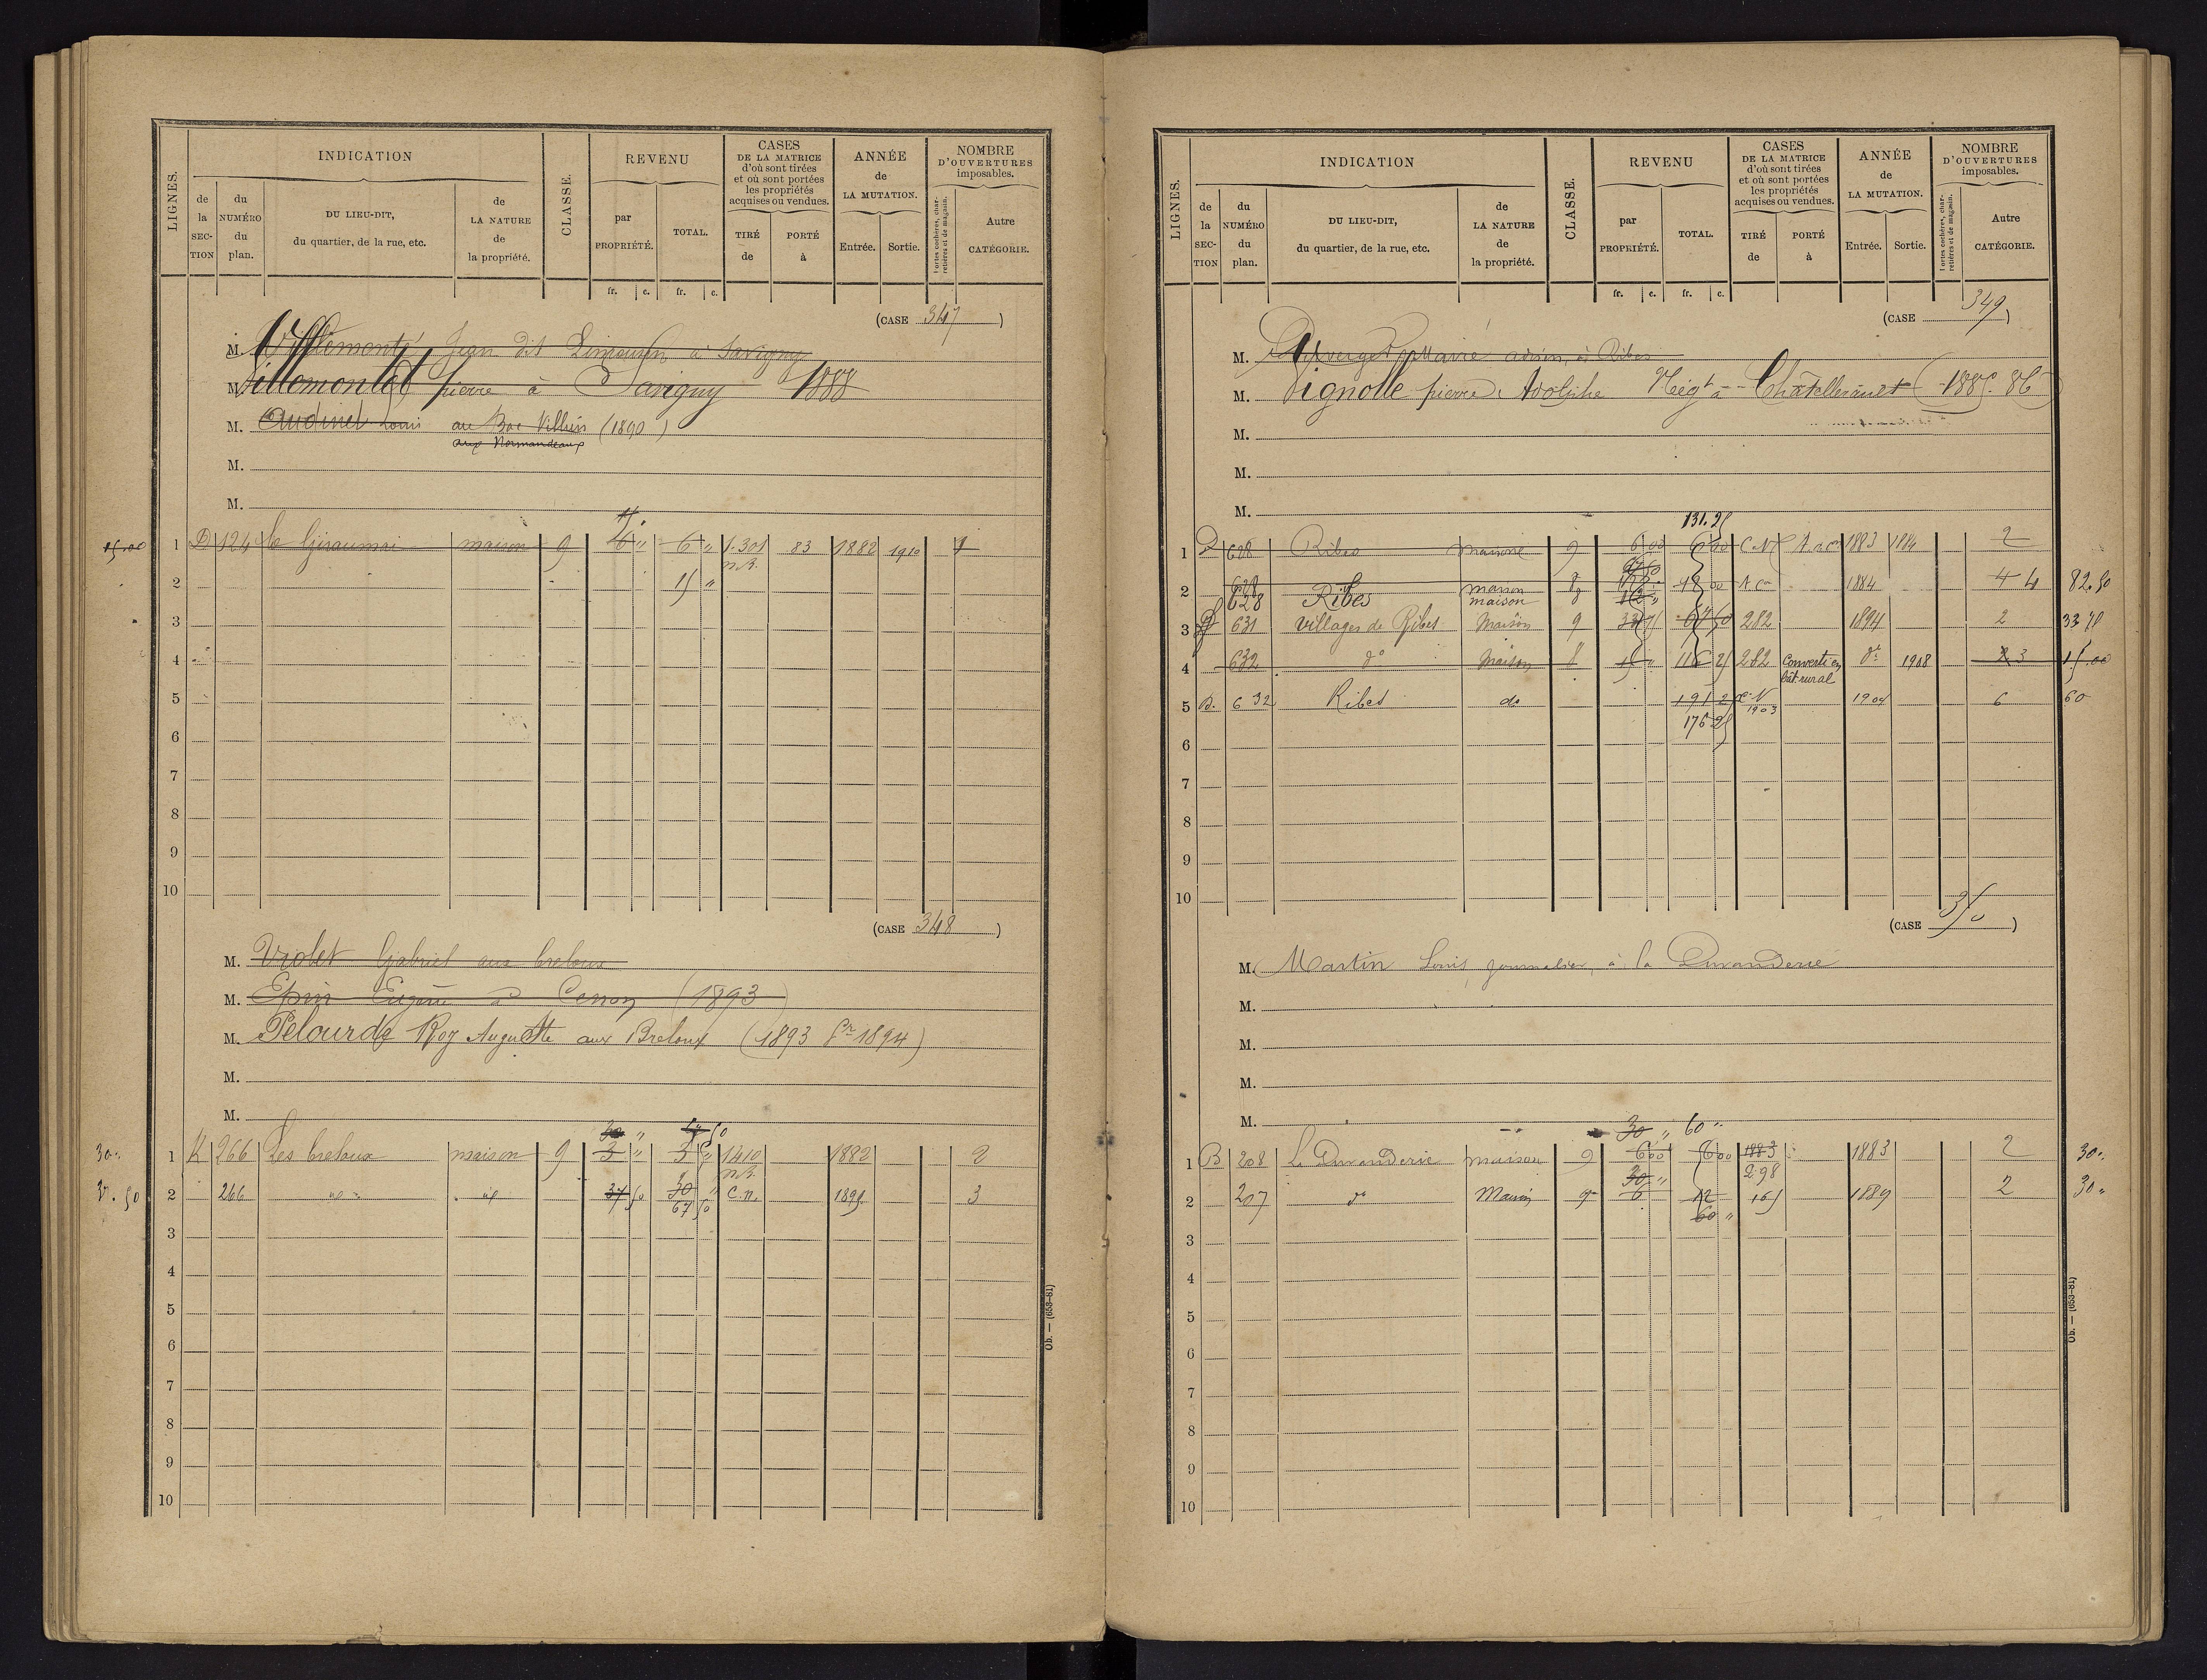 LIGNES. INDICATION CLASSE. REVENU CASES DE LA MATRICE d'où sont tirées et où sont portées les propriétés acquises ou vendues. ANNÉE de LA MUTATION. NOMBRE D'OUVERTURES imposables.
de la SECTION du NUMÉRO du plan. DU LIEU-DIT, du quartier, de la rue, etc. de LA NATURE de la propriété. par PROPRIÉTÉ. TOTAL. TIRÉ de PORTÉ à Entrée. Sortie. Portes cochères, charretières et de magasin. Autre CATÉGORIE.
fr. c. fr. c.
(CASE 347)
M. Villemonté Jean dit Limousin à Savigny
M. Villemontet pierre à Savigny 1888
M. Audinet Louis au Bac Villiers (1890)
aux Normandeaux
M.
M.
15.
15.00 1 D 124 le Giraumai maison 9 6 " 6 " 1.301 83 1882 1910 1
n.B.
2 15 "
3
4
5
6
7
8
9
10
(CASE 348)
M. Violet Gabriel aux breloux
M. Epin Eugène à Cenon (1893)
M. Pelourde Roy Auguste aux Breloux (1893 Pr 1894)
M.
M.
30 " 67 50
30 " 1 K 266 Les breloux maison 9 3 " 3 " 1410 1882 2
n.B.
37.50 2 266 id id 37 50 30 " C.n. 1891 3
67 50
3
4
5
6
7
8
9
10
Ob. — (653-81)
LIGNES. INDICATION CLASSE. REVENU CASES DE LA MATRICE d'où sont tirées et où sont portées les propriétés acquises ou vendues. ANNÉE de LA MUTATION. NOMBRE D'OUVERTURES imposables.
de la SECTION du NUMÉRO du plan. DU LIEU-DIT, du quartier, de la rue, etc. de LA NATURE de la propriété. par PROPRIÉTÉ. TOTAL. TIRÉ de PORTÉ à Entrée. Sortie. Portes cochères, charretières et de magasin. Autre CATÉGORIE.
fr. c. fr. c.
(CASE 349)
M. à Ribes
M. Vignolle pierre Adolphe Négt à Châtellerault (1885. 86)
M.
M.
M.
131.25
1 D 628 Ribes maison 9 6 00 6 00 C.N 1883 1884 2
67 50
2 628 maison 8 18 00 A. Con 1884 4 4 82.50
628 Ribes maison 8 12 "
3 D 631 Villages de Ribes Maison 9 33 75 67 50 282 1894 2 33 75
4 632 do Maison 8 15 " 116 25 282 Converti en bât. rural do 1908 2 3 15.00
5 D. 632 Ribes do 191 25 C.N 1903 1904 6 60
176 25
6
7
8
9
10
(CASE 350)
M. Martin Louis journalier, à la Duranderie
M.
M.
M.
M.
30 " 60 "
1 B 208 La Duranderie maison 9 6 00 6 00 1883 1883 2 30 "
30 " 298
2 207 do Maison 9 6 12 165 1889 2 30 "
60 "
3
4
5
6
7
8
9
10
Ob. — (653-81)